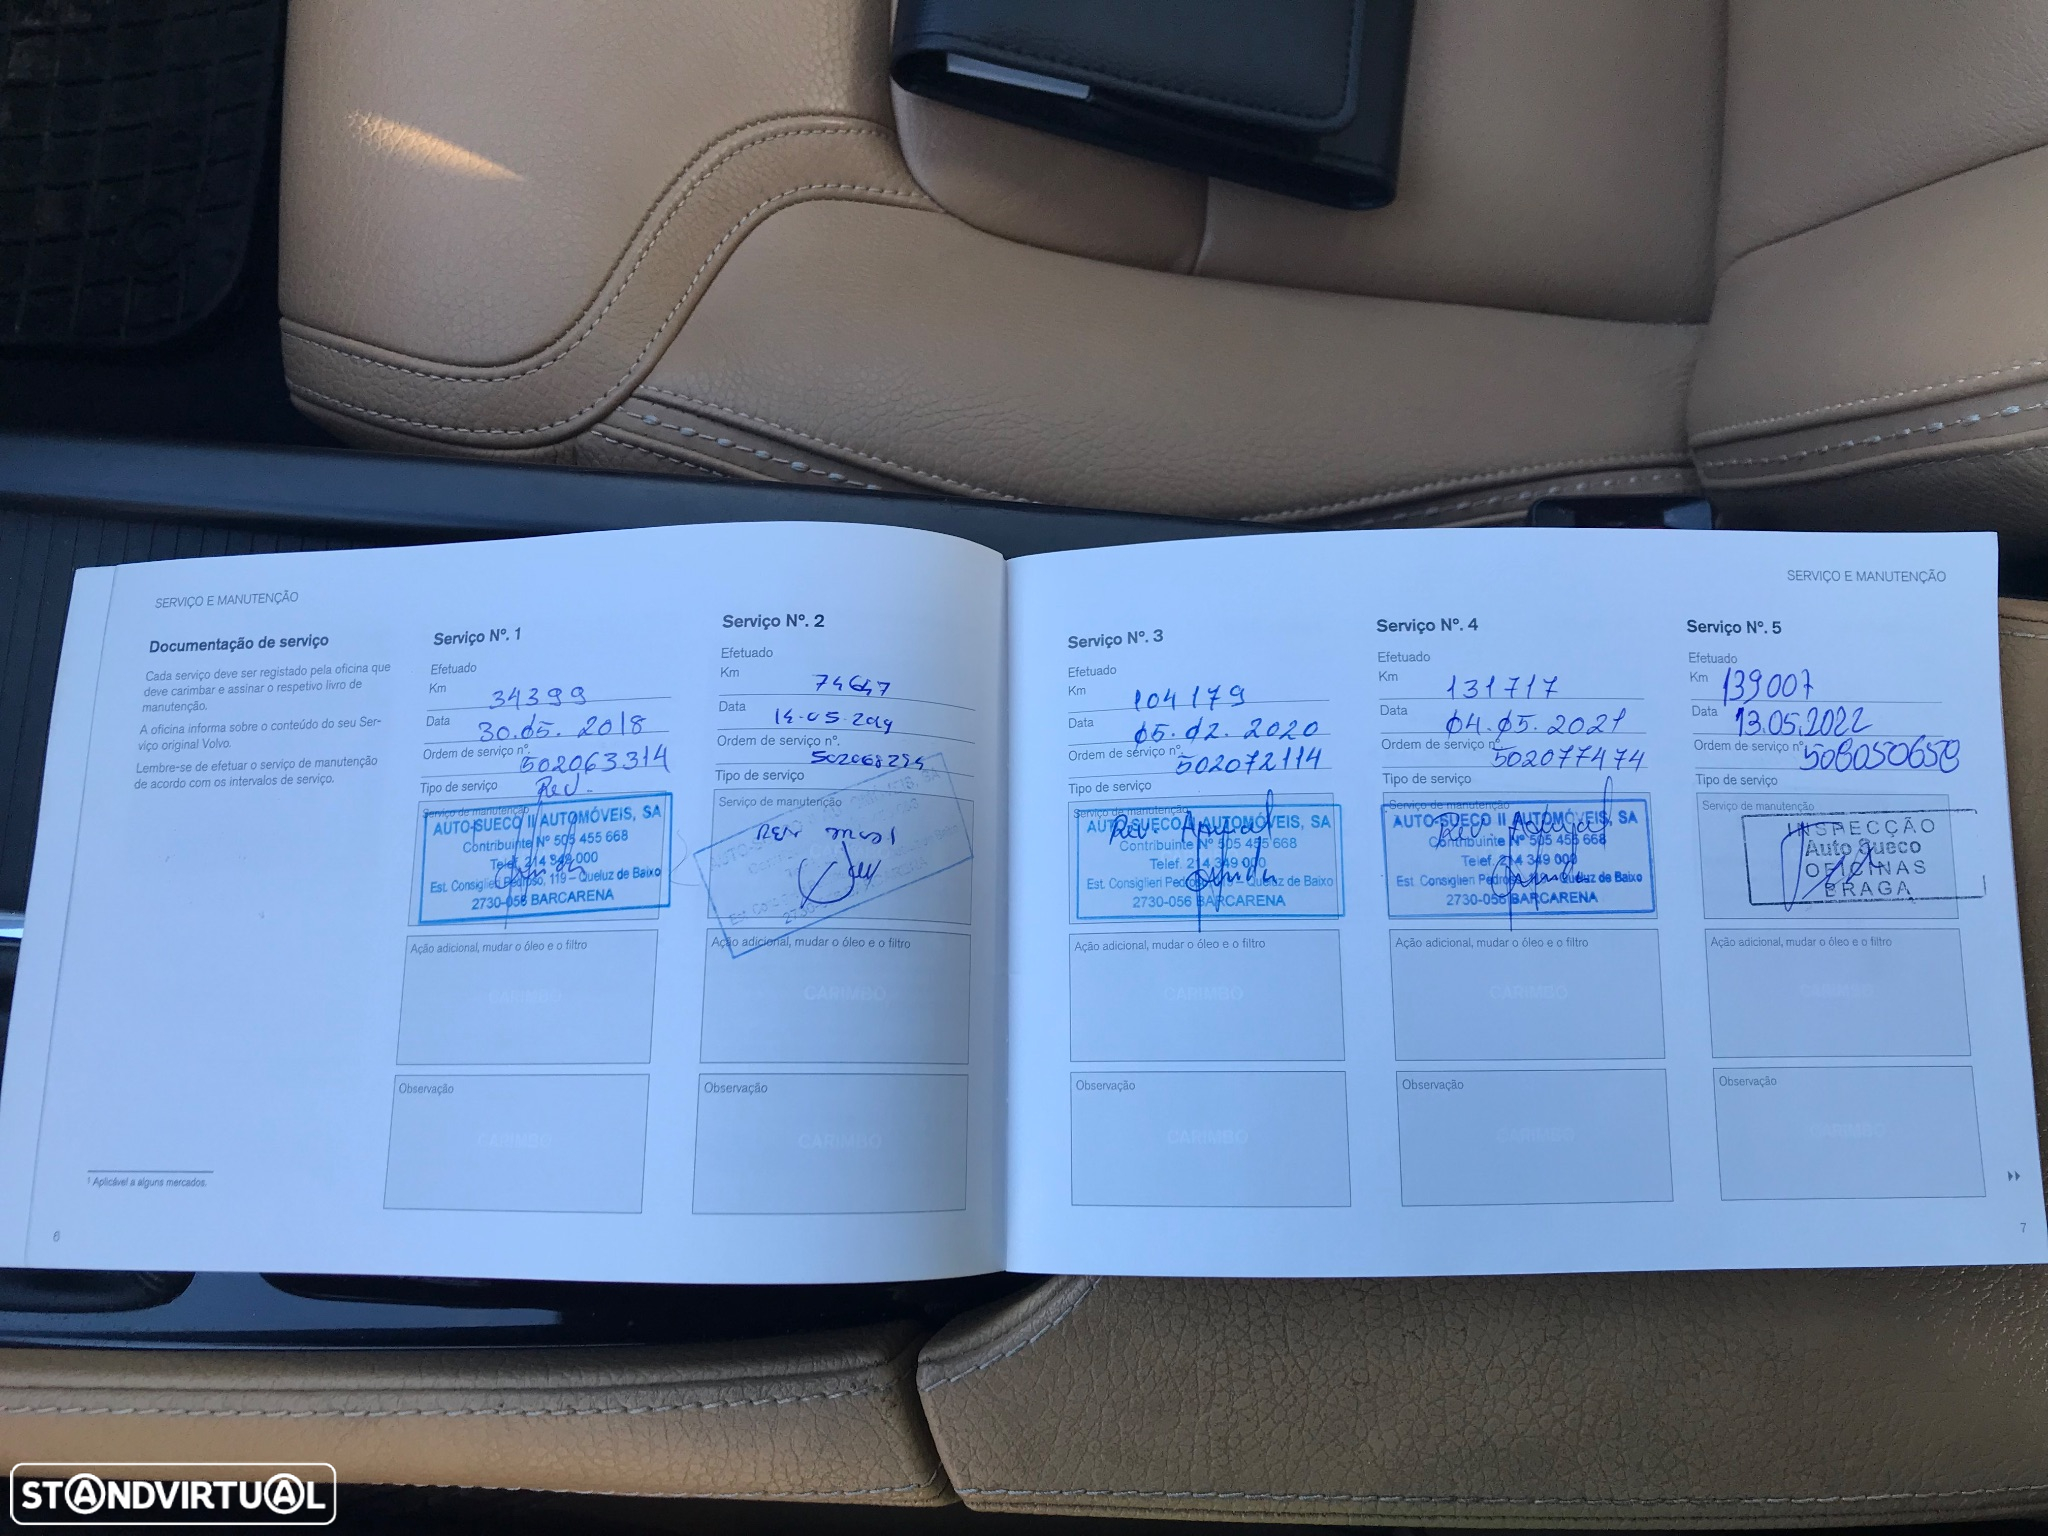 SERVIÇO E MANUTENÇÃO
Documentação de serviço
Cada serviço deve ser registado pela oficina que
deve carimbar e assinar o respetivo livro de
manutenção.
A oficina informa sobre o conteúdo do seu Ser-
viço original Volvo.
Lembre-se de efetuar o serviço de manutenção
de acordo com os intervalos de serviço.
¹ Aplicável a alguns mercados.
6
Serviço Nº. 1
Efetuado
Km 34399
Data 30.05.2018
Ordem de serviço nº. 502063314
Tipo de serviço Rev.
Serviço de manutenção
AUTO-SUECO II AUTOMÓVEIS, SA
Contribuinte Nº 505 455 668
Telef. 214 349 000
Est. Consiglieri Pedroso, 119 – Queluz de Baixo
2730-056 BARCARENA
Ação adicional, mudar o óleo e o filtro
CARIMBO
Observação
CARIMBO
Serviço Nº. 2
Efetuado
Km 74647
Data
Ordem de serviço nº.
Tipo de serviço
Serviço de manutenção
Ação adicional, mudar o óleo e o filtro
CARIMBO
Observação
CARIMBO
SERVIÇO E MANUTENÇÃO
Serviço Nº. 3
Efetuado
Km 104179
Data 05.02.2020
Ordem de serviço nº. 502072114
Tipo de serviço
Serviço de manutenção
Rev.
AUTO-SUECO II AUTOMÓVEIS, SA
Contribuinte Nº 505 455 668
Telef. 214 349 000
Est. Consiglieri Pedroso, 119 – Queluz de Baixo
2730-056 BARCARENA
Ação adicional, mudar o óleo e o filtro
CARIMBO
Observação
CARIMBO
Serviço Nº. 4
Efetuado
Km 131717
Data 04.05.2021
Ordem de serviço nº. 502077474
Tipo de serviço
Serviço de manutenção
Rev
AUTO-SUECO II AUTOMÓVEIS, SA
Contribuinte Nº 505 455 668
Telef. 214 349 000
Est. Consiglieri Pedroso, 119 – Queluz de Baixo
2730-056 BARCARENA
Ação adicional, mudar o óleo e o filtro
CARIMBO
Observação
CARIMBO
Serviço Nº. 5
Efetuado
Km 139007
Data 13.05.2022
Ordem de serviço nº
Tipo de serviço
Serviço de manutenção
INSPECÇÃO
Auto Sueco
OFICINAS
BRAGA
Ação adicional, mudar o óleo e o filtro
CARIMBO
Observação
CARIMBO
7
STANDVIRTUAL